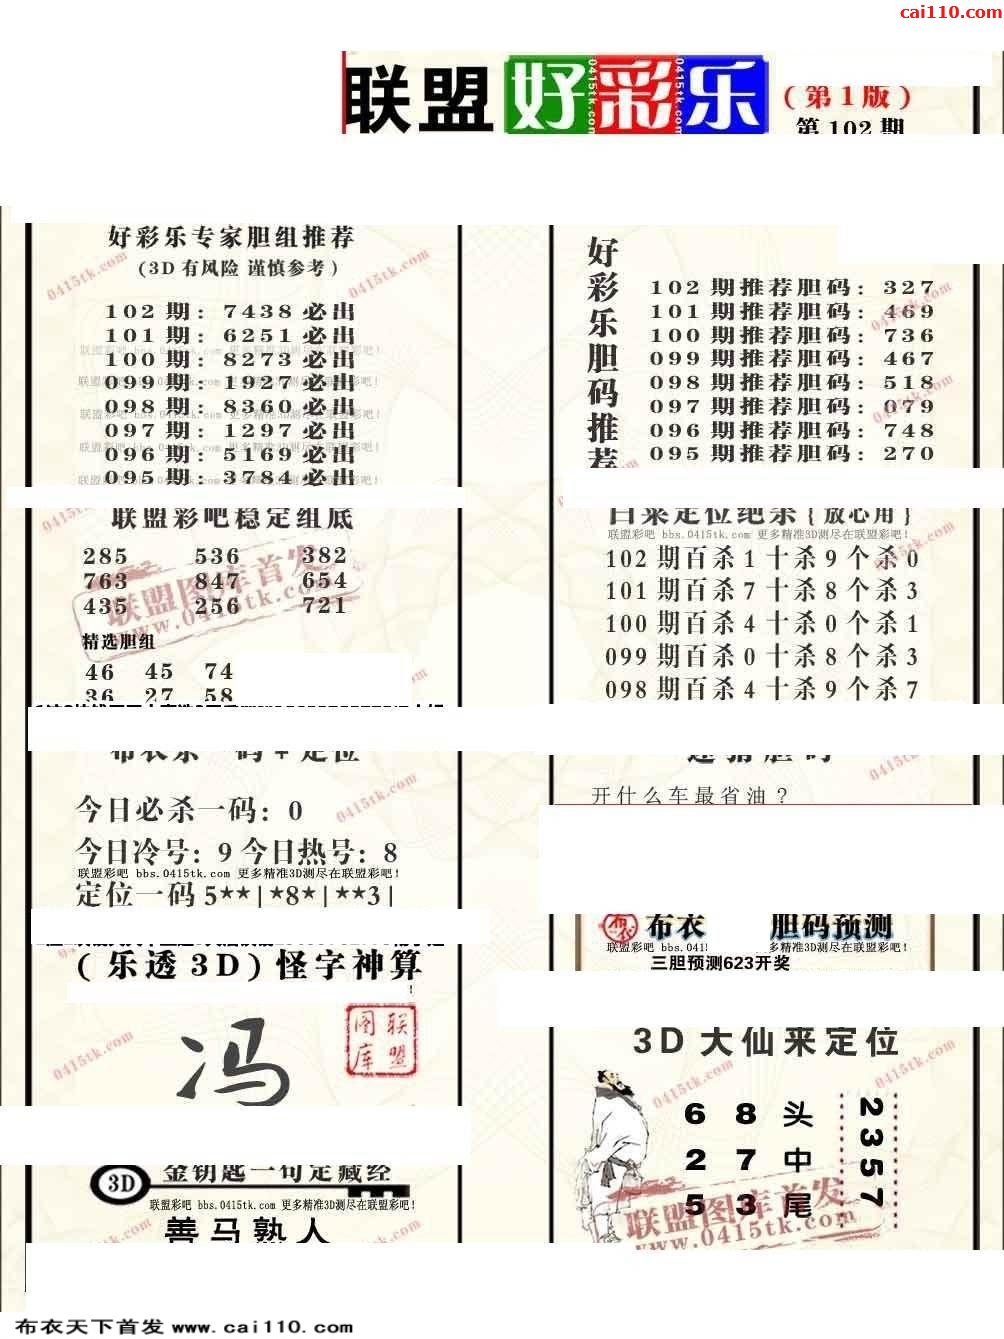 cai110.com
联盟 好彩乐
0415tk.com 0415tk.com
(第1版)
第102期
好彩乐专家胆组推荐
(3D有风险 谨慎参考)
102期: 7438必出
101期: 6251必出
100期: 8273必出
099期: 1927必出
098期: 8360必出
097期: 1297必出
096期: 5169必出
095期: 3784必出
联盟彩吧稳定组底
285 536 382
763 847 654
435 256 721
联盟图库首发
www.0415tk.com
精选胆组
46 45 74
36 27 58
今日必杀一码: 0
今日冷号: 9 今日热号: 8
联盟彩吧 bbs.0415tk.com 更多精准3D测尽在联盟彩吧!
定位一码 5**|*8*|**3|
(乐透3D)怪字神算
冯
联盟图库
3D
金钥匙一句定藏经
联盟彩吧 bbs.0415tk.com 更多精准3D测尽在联盟彩吧!
善马熟人
好彩乐胆码推荐
102期推荐胆码: 327
101期推荐胆码: 469
100期推荐胆码: 736
099期推荐胆码: 467
098期推荐胆码: 518
097期推荐胆码: 079
096期推荐胆码: 748
095期推荐胆码: 270
白菜定位绝杀{放心用}
联盟彩吧 bbs.0415tk.com 更多精准3D测尽在联盟彩吧!
102期百杀1十杀9个杀0
101期百杀7十杀8个杀3
100期百杀4十杀0个杀1
099期百杀0十杀8个杀3
098期百杀4十杀9个杀7
开什么车最省油?
布衣 布衣 胆码预测
联盟彩吧 bbs.041 多精准3D测尽在联盟彩吧!
三胆预测623开奖
3D大仙来定位
6 8 头
2 7 中
5 3 尾
2357
联盟图库首发
www.0415tk.com
布衣天下首发 www.cai110.com